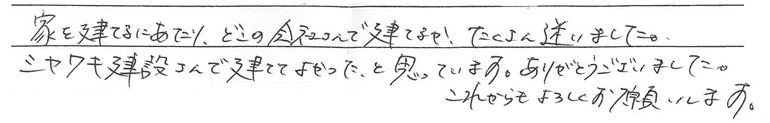 家を建てるにあたり、どこの会社さんで建てるか、たくさん迷いました。
ミヤワキ建設さんで建ててよかった、と思っています。ありがとうございました。
これからもよろしくお願いします。